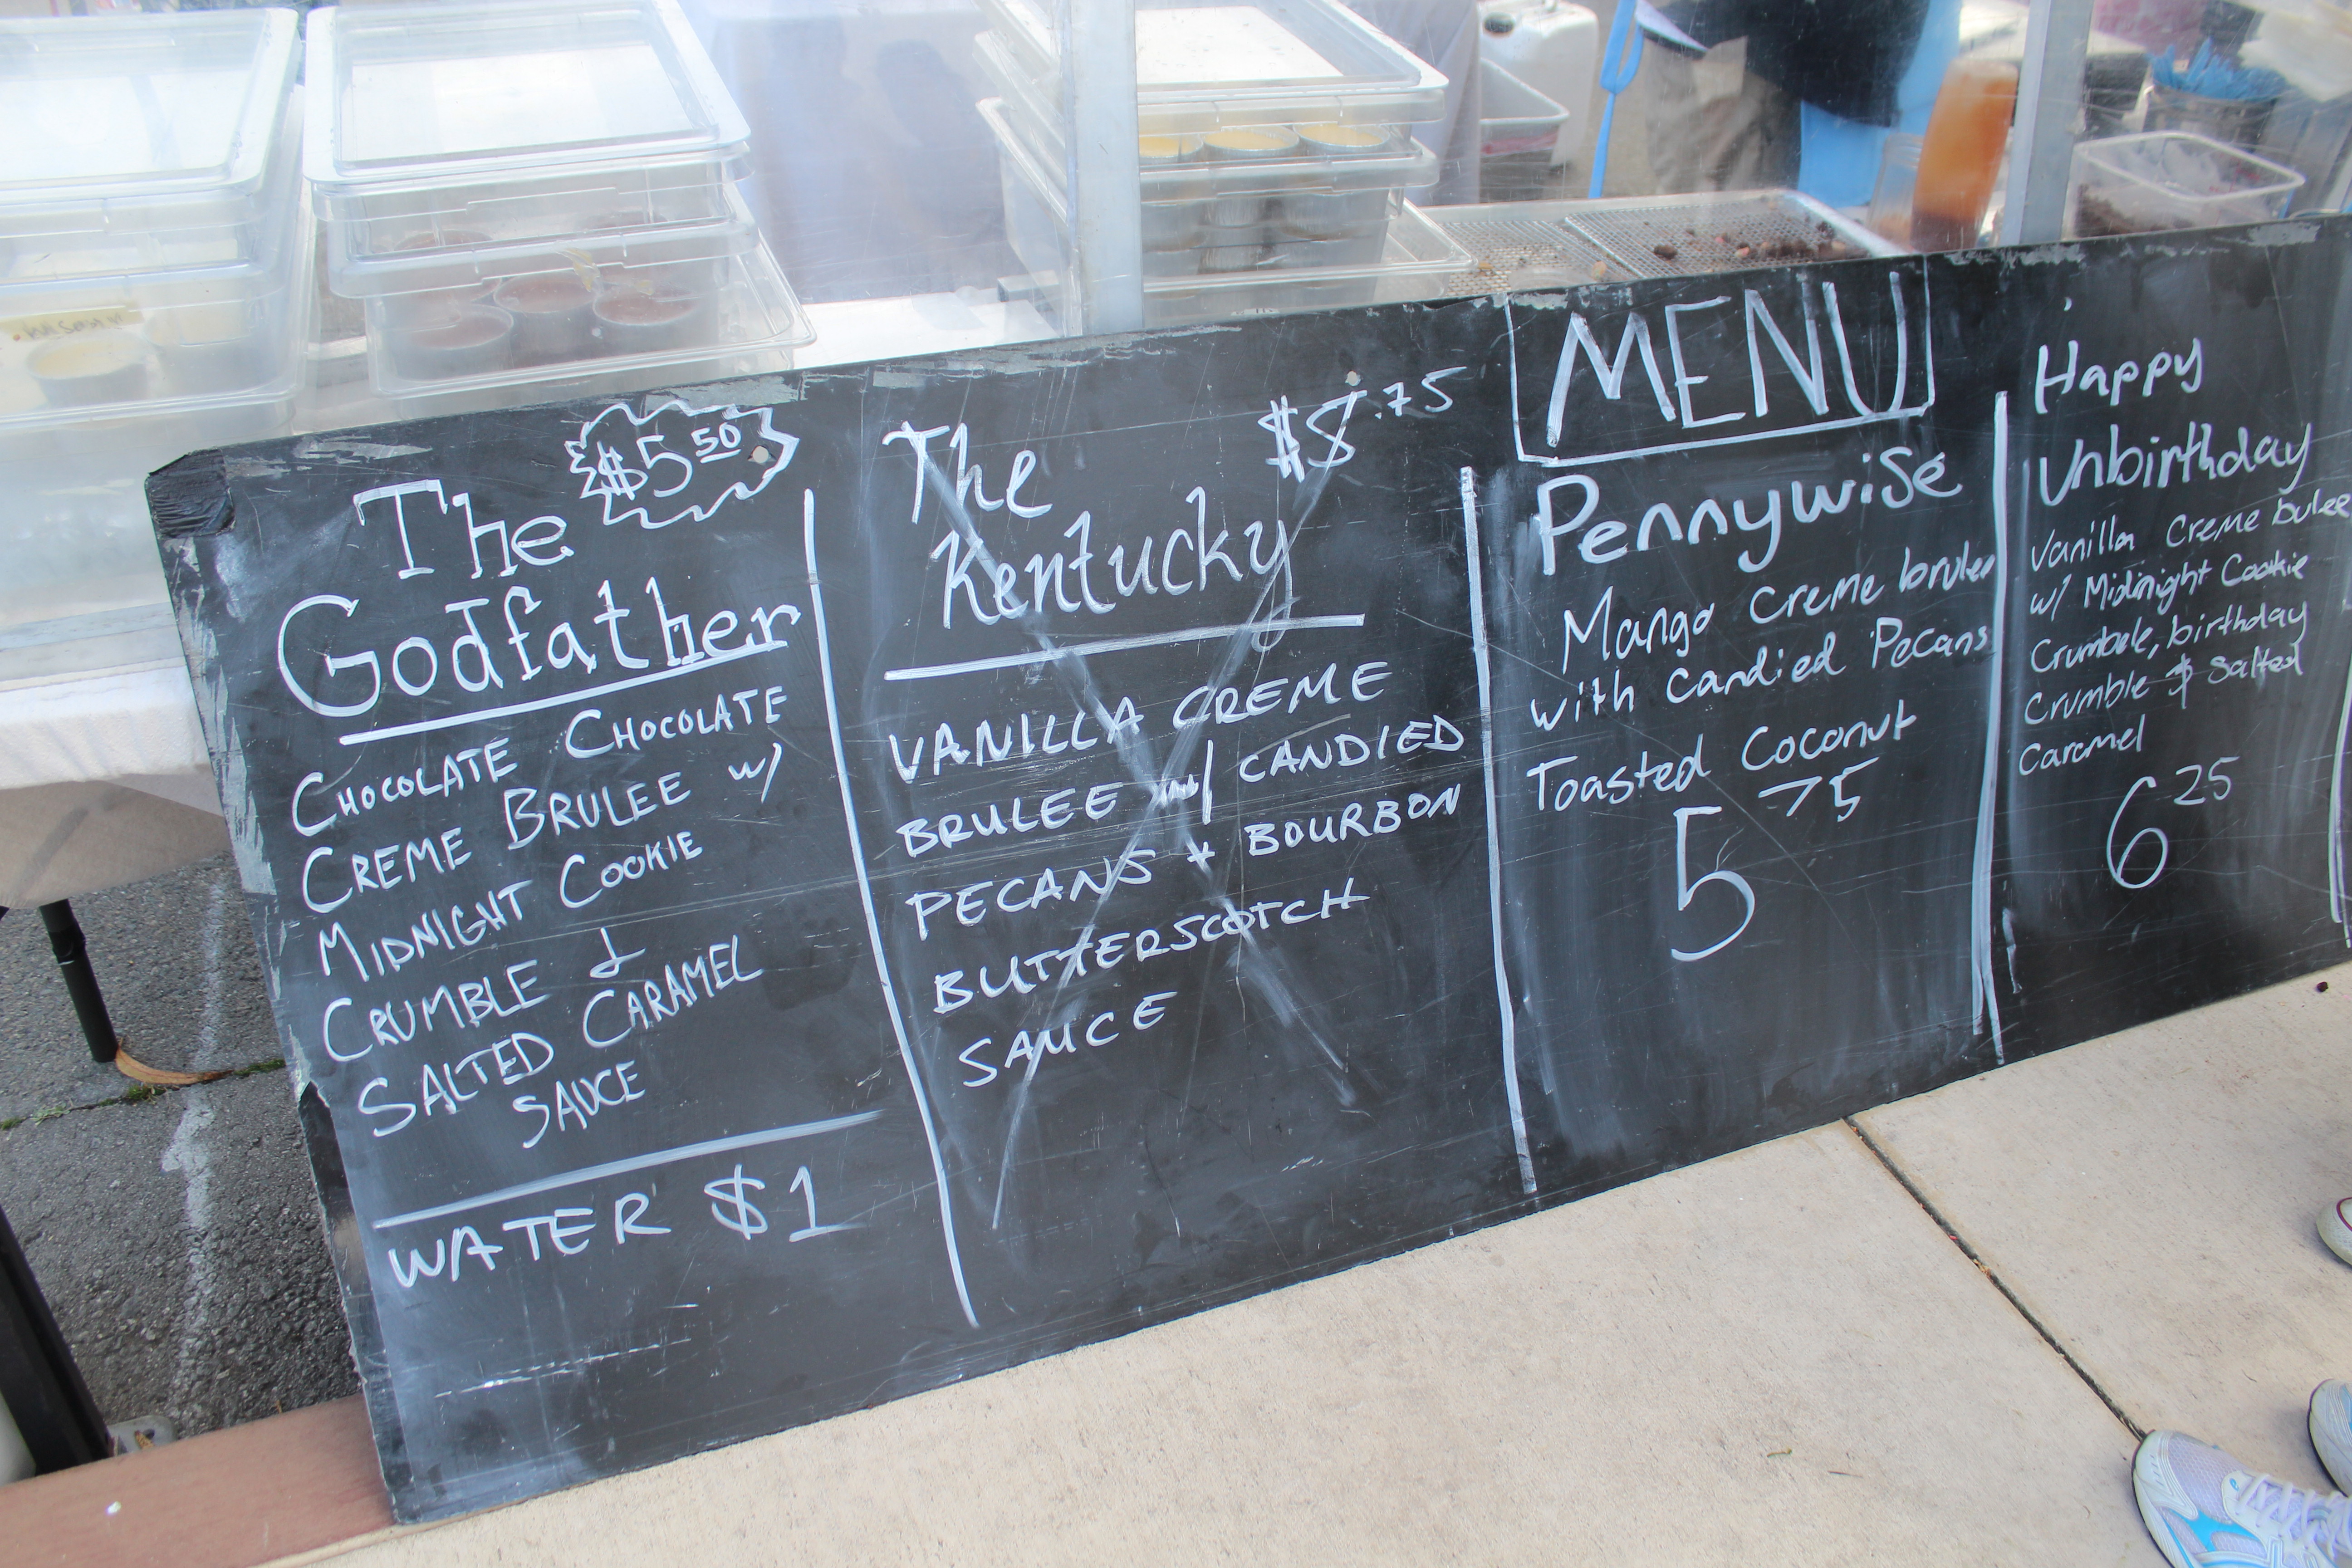 The
$5 50
Godfather
CHOCOLATE CHOCOLATE
CREME BRULEE w/
MIDNIGHT COOKIE
CRUMBLE &
SALTED CARAMEL
SAUCE
WATER $1
The
$5.75
Kentucky
VANILLA CREME
BRULEE w/ CANDIED
PECANS + BOURBON
BUTTERSCOTCH
SAUCE
MENU
Pennywise
Mango Creme brulee
with Candied Pecans
Toasted Coconut
5 75
Happy
Unbirthday
Vanilla Creme bulee
w/ Midnight Cookie
Crumbele, birthday
Crumble & Salted
Caramel
6 25